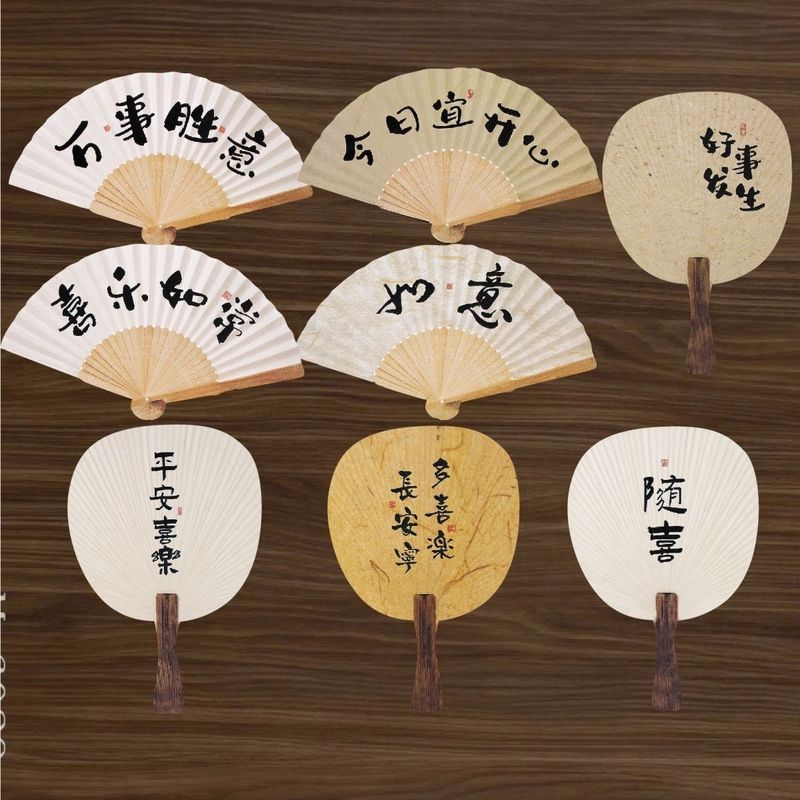 万事胜意
今日宜开心
好事
发生
喜乐如常
如意
平安喜樂
多喜楽
長安寧
随喜